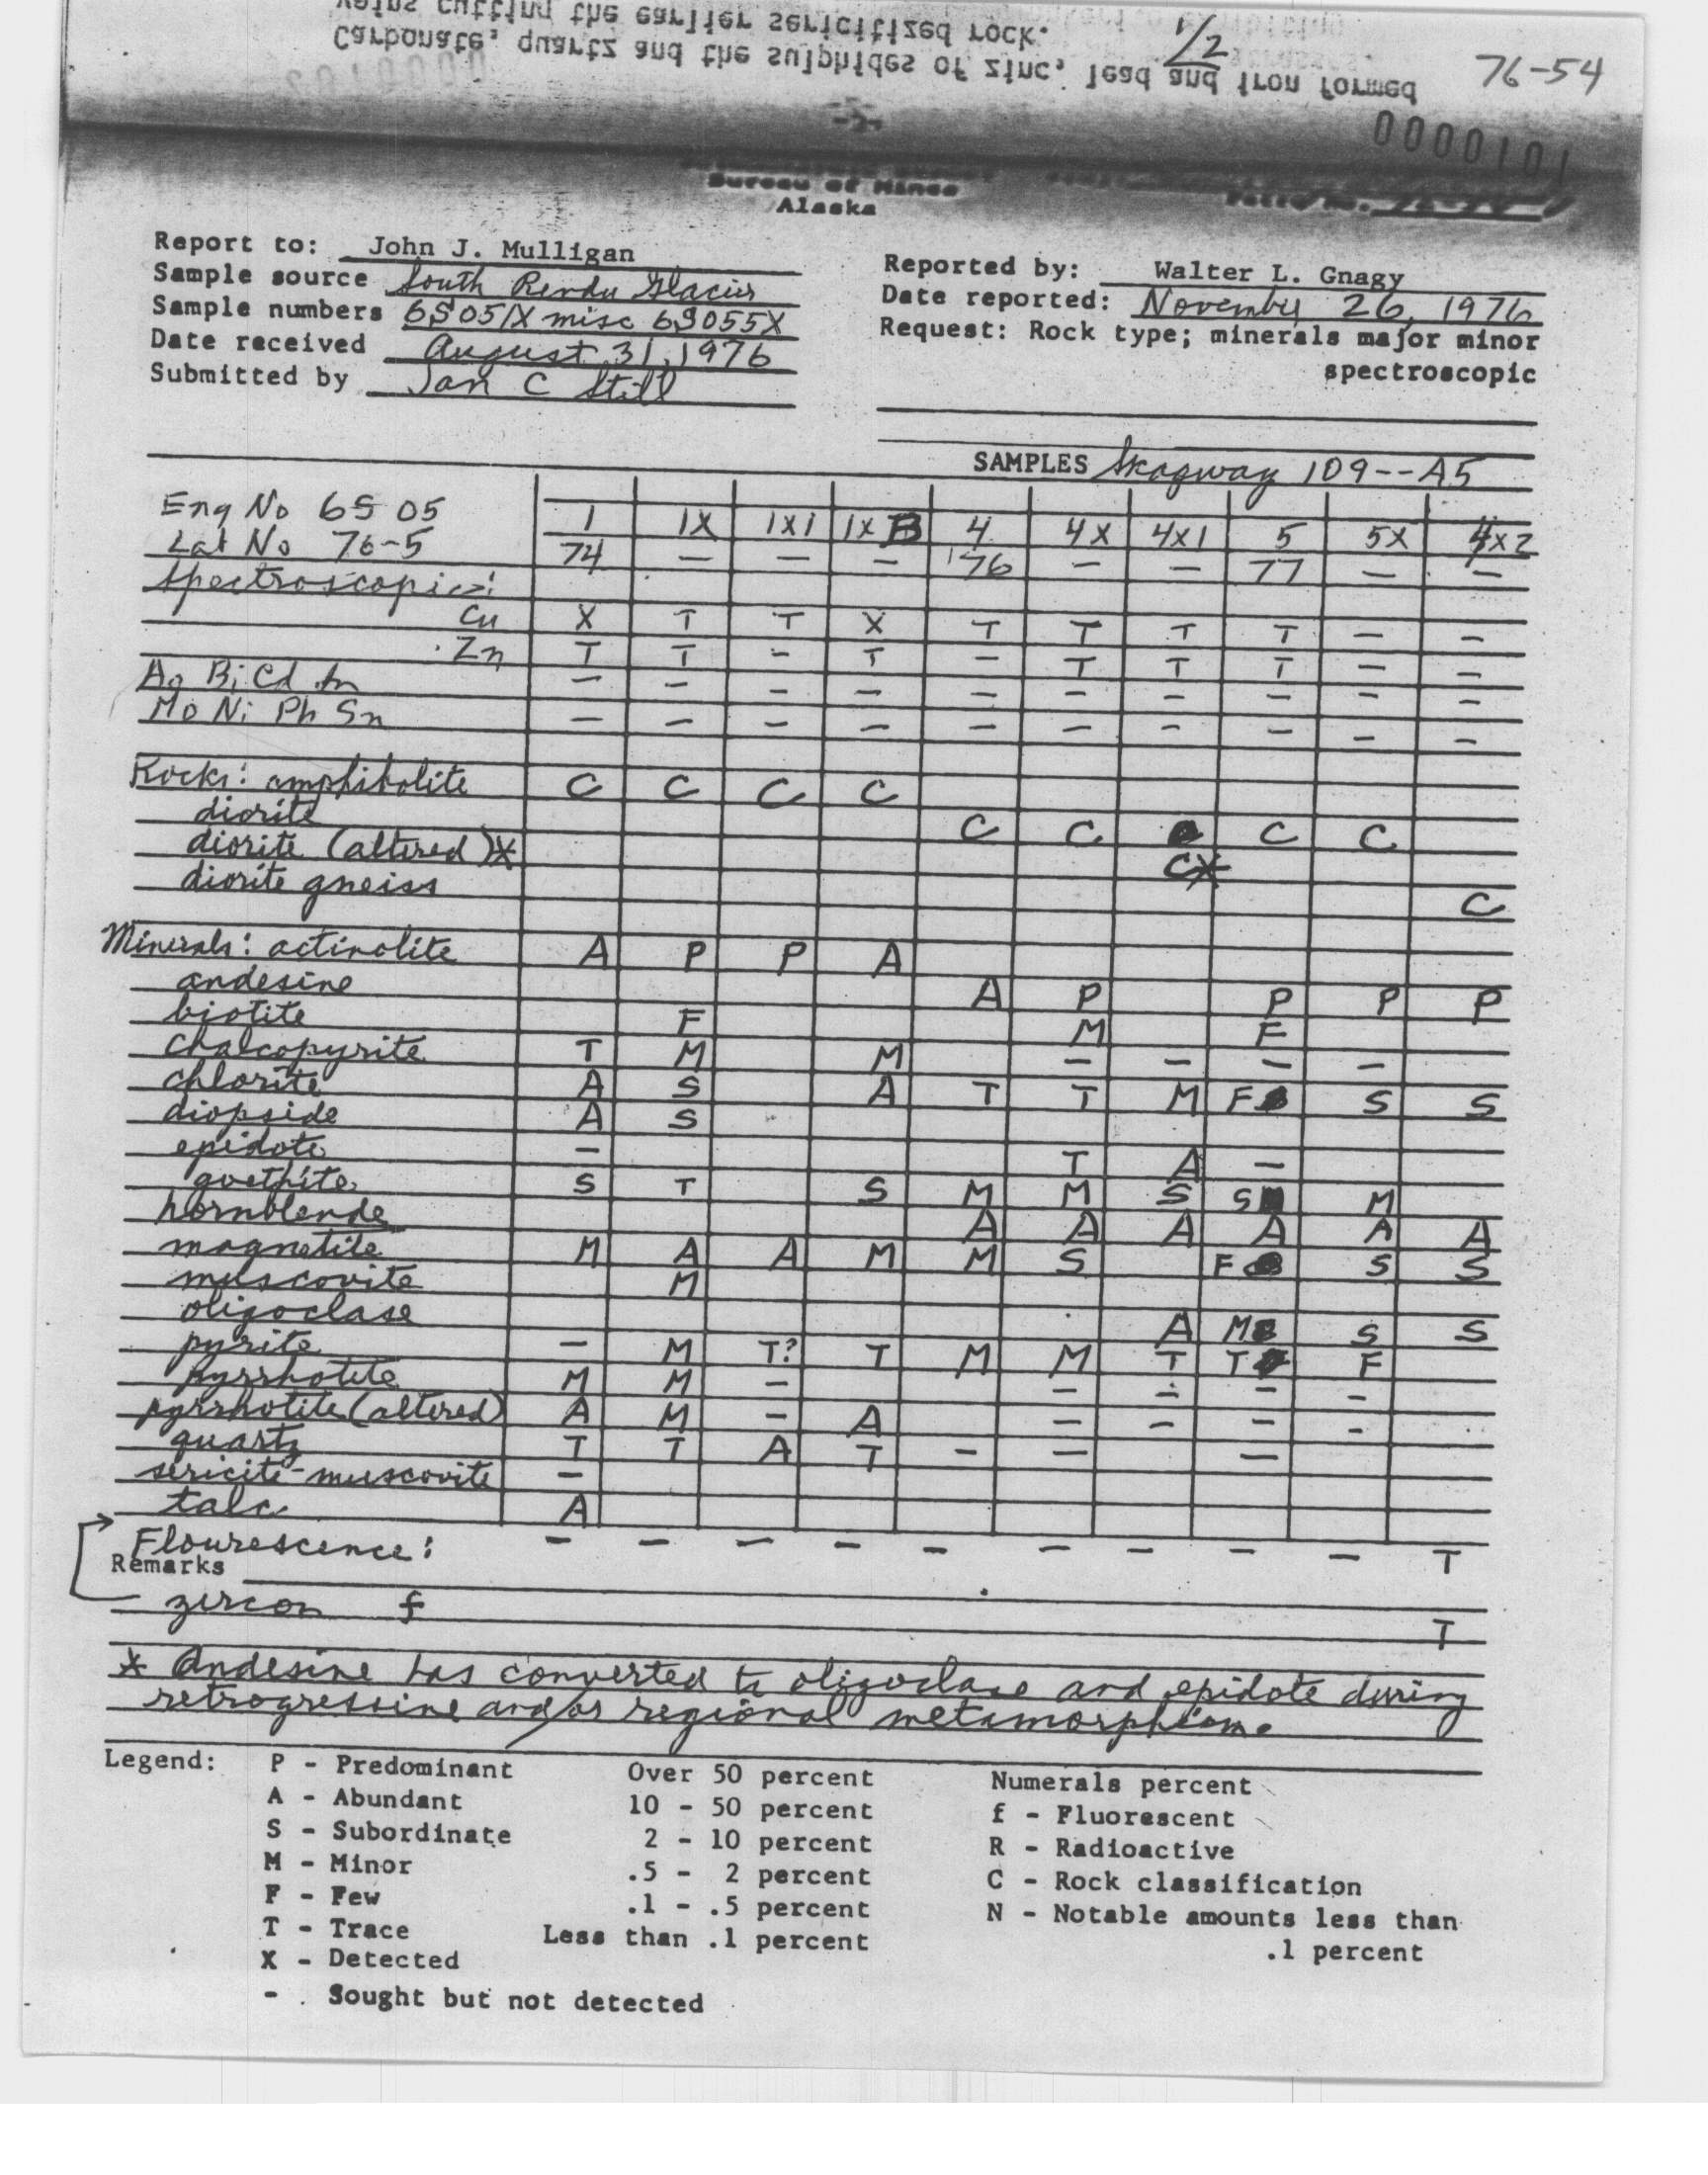 veins cutting the earlier sericitized rock.
Carbonate, quartz and the sulphides of zinc, lead and iron formed
1/2
76-54
0000101
Bureau of Mines
Alaska
Report to: John J. Mulligan
Sample source South Rendu Glacier
Sample numbers 6S051X misc 6S055X
Date received August 31, 1976
Submitted by Jan C Still
Reported by: Walter L. Gnagy
Date reported: November 26, 1976
Request: Rock type; minerals major minor
spectroscopic
SAMPLES Skagway 109--A5
Eng No 6S05 1 1X 1X1 1XB 4 4X 4X1 5 5X 4X2
Lat No 76-5 74 — — — 76 — — 77 — —
Spectroscopic:
Cu X T T X T T T T — —
Zn T T - T - T T T — —
Ag Bi Cd — - - - - - - - - -
Mo Ni Pb Sn — - - - - - - - - -
Rocks: amphibolite C C C C
diorite C C C C
diorite (altered)* C*
diorite gneiss C
Minerals: actinolite A P P A
andesine A P P P P
biotite F M F
chalcopyrite T M M — — — —
chlorite A S A T T M F S S
diopside A S
epidote — T A —
goethite S T S M M S S M
hornblende A A A A A A
magnetite M A A M M S F S S
muscovite M
oligoclase A M S S
pyrite — M T? T M M T T F
pyrrhotite M M — — — — -
pyrrhotite (altered) A M - A — — — -
quartz T T A T — — —
sericite-muscovite —
talc A
Flourescence: — — — — — — — — — T
Remarks
zircon f T
* Andesine has converted to oligoclase and epidote during
retrogressine and/or regional metamorphism.
Legend: P - Predominant Over 50 percent Numerals percent
A - Abundant 10 - 50 percent f - Fluorescent
S - Subordinate 2 - 10 percent R - Radioactive
M - Minor .5 - 2 percent C - Rock classification
F - Few .1 - .5 percent N - Notable amounts less than
T - Trace Less than .1 percent .1 percent
X - Detected
- . Sought but not detected